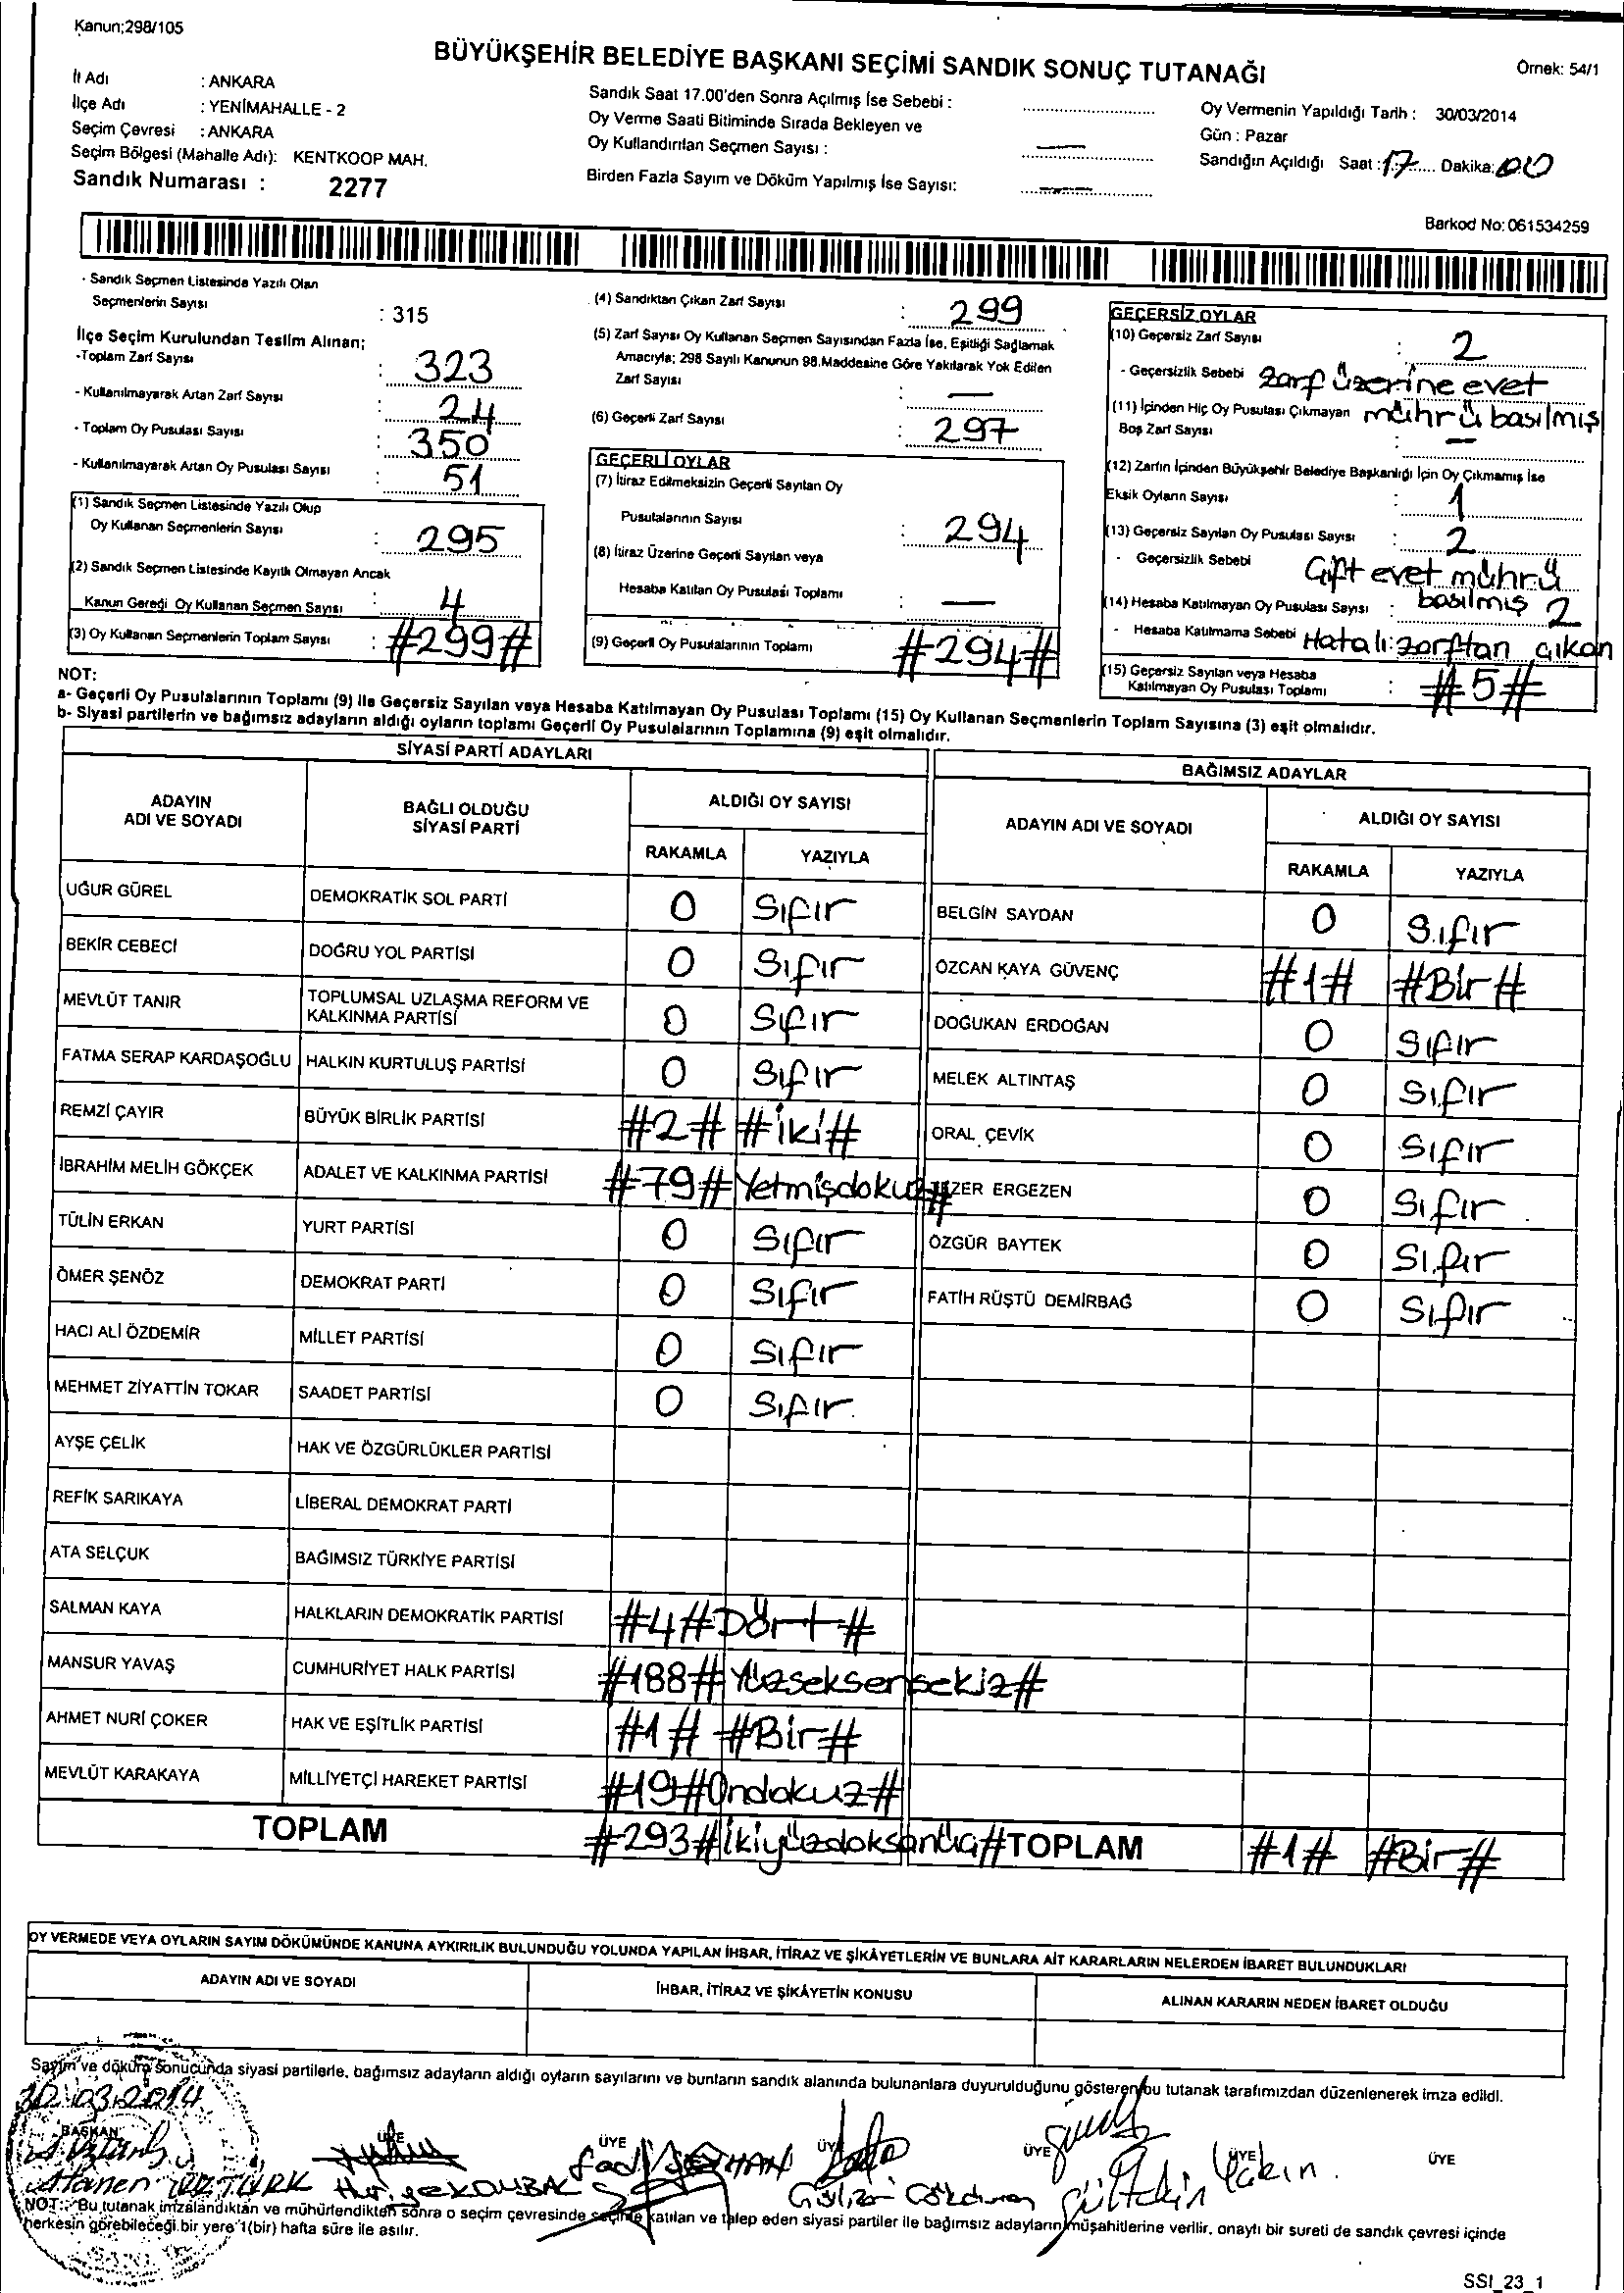 Kanun;298/105
BÜYÜKŞEHİR BELEDİYE BAŞKANI SEÇİMİ SANDIK SONUÇ TUTANAĞI
Örnek: 54/1
İl Adı : ANKARA
İlçe Adı : YENİMAHALLE - 2
Seçim Çevresi : ANKARA
Seçim Bölgesi (Mahalle Adı): KENTKOOP MAH.
Sandık Numarası : 2277
Sandık Saat 17.00'den Sonra Açılmış İse Sebebi :
Oy Verme Saati Bitiminde Sırada Bekleyen ve
Oy Kullandırılan Seçmen Sayısı : —
Birden Fazla Sayım ve Döküm Yapılmış İse Sayısı: —
Oy Vermenin Yapıldığı Tarih : 30/03/2014
Gün : Pazar
Sandığın Açıldığı Saat : 17 Dakika: 00
Barkod No: 061534259
- Sandık Seçmen Listesinde Yazılı Olan
Seçmenlerin Sayısı : 315
İlçe Seçim Kurulundan Teslim Alınan;
-Toplam Zarf Sayısı : 323
- Kullanılmayarak Artan Zarf Sayısı : 24
- Toplam Oy Pusulası Sayısı : 350
- Kullanılmayarak Artan Oy Pusulası Sayısı : 51
(1) Sandık Seçmen Listesinde Yazılı Olup
Oy Kullanan Seçmenlerin Sayısı : 295
(2) Sandık Seçmen Listesinde Kayıtlı Olmayan Ancak
Kanun Gereği Oy Kullanan Seçmen Sayısı : 4
(3) Oy Kullanan Seçmenlerin Toplam Sayısı : #299#
(4) Sandıktan Çıkan Zarf Sayısı : 299
(5) Zarf Sayısı Oy Kullanan Seçmen Sayısından Fazla İse, Eşitliği Sağlamak
Amacıyla; 298 Sayılı Kanunun 98.Maddesine Göre Yakılarak Yok Edilen
Zarf Sayısı : —
(6) Geçerli Zarf Sayısı : 297
GEÇERLİ OYLAR
(7) İtiraz Edilmeksizin Geçerli Sayılan Oy
Pusulalarının Sayısı : 294
(8) İtiraz Üzerine Geçerli Sayılan veya
Hesaba Katılan Oy Pusulası Toplamı : —
(9) Geçerli Oy Pusulalarının Toplamı #294#
GEÇERSİZ OYLAR
(10) Geçersiz Zarf Sayısı : 2
- Geçersizlik Sebebi zarf üzerine evet
mührü basılmış
(11) İçinden Hiç Oy Pusulası Çıkmayan
Boş Zarf Sayısı : —
(12) Zarfın İçinden Büyükşehir Belediye Başkanlığı İçin Oy Çıkmamış İse
Eksik Oyların Sayısı : 1
(13) Geçersiz Sayılan Oy Pusulası Sayısı : 2
- Geçersizlik Sebebi Çift evet mührü
basılmış
(14) Hesaba Katılmayan Oy Pusulası Sayısı : 2
- Hesaba Katılmama Sebebi Hatalı zarftan çıkan
(15) Geçersiz Sayılan veya Hesaba
Katılmayan Oy Pusulası Toplamı : #5#
NOT:
a- Geçerli Oy Pusulalarının Toplamı (9) ile Geçersiz Sayılan veya Hesaba Katılmayan Oy Pusulası Toplamı (15) Oy Kullanan Seçmenlerin Toplam Sayısına (3) eşit olmalıdır.
b- Siyasi partilerin ve bağımsız adayların aldığı oyların toplamı Geçerli Oy Pusulalarının Toplamına (9) eşit olmalıdır.
SİYASİ PARTİ ADAYLARI
ADAYIN ADI VE SOYADI BAĞLI OLDUĞU SİYASİ PARTİ ALDIĞI OY SAYISI
RAKAMLA YAZIYLA
UĞUR GÜREL DEMOKRATİK SOL PARTİ 0 Sıfır
BEKİR CEBECİ DOĞRU YOL PARTİSİ 0 Sıfır
MEVLÜT TANIR TOPLUMSAL UZLAŞMA REFORM VE KALKINMA PARTİSİ 0 Sıfır
FATMA SERAP KARDAŞOĞLU HALKIN KURTULUŞ PARTİSİ 0 Sıfır
REMZİ ÇAYIR BÜYÜK BİRLİK PARTİSİ #2# #iki#
İBRAHİM MELİH GÖKÇEK ADALET VE KALKINMA PARTİSİ #79# Yetmişdokuz#
TÜLİN ERKAN YURT PARTİSİ 0 Sıfır
ÖMER ŞENÖZ DEMOKRAT PARTİ 0 Sıfır
HACI ALİ ÖZDEMİR MİLLET PARTİSİ 0 Sıfır
MEHMET ZİYATTİN TOKAR SAADET PARTİSİ 0 Sıfır
AYŞE ÇELİK HAK VE ÖZGÜRLÜKLER PARTİSİ
REFİK SARIKAYA LİBERAL DEMOKRAT PARTİ
ATA SELÇUK BAĞIMSIZ TÜRKİYE PARTİSİ
SALMAN KAYA HALKLARIN DEMOKRATİK PARTİSİ #4# Dört#
MANSUR YAVAŞ CUMHURİYET HALK PARTİSİ #188# Yüzseksensekiz#
AHMET NURİ ÇOKER HAK VE EŞİTLİK PARTİSİ #1# #Bir#
MEVLÜT KARAKAYA MİLLİYETÇİ HAREKET PARTİSİ #19# Ondokuz#
TOPLAM #293# ikiyüzdoksanüç#
BAĞIMSIZ ADAYLAR
ADAYIN ADI VE SOYADI ALDIĞI OY SAYISI
RAKAMLA YAZIYLA
BELGİN SAYDAN 0 Sıfır
ÖZCAN KAYA GÜVENÇ #1# #Bir#
DOĞUKAN ERDOĞAN 0 Sıfır
MELEK ALTINTAŞ 0 Sıfır
ORAL ÇEVİK 0 Sıfır
ERGEZEN 0 Sıfır
ÖZGÜR BAYTEK 0 Sıfır
FATİH RÜŞTÜ DEMİRBAĞ 0 Sıfır
TOPLAM #1# #Bir#
OY VERMEDE VEYA OYLARIN SAYIM DÖKÜMÜNDE KANUNA AYKIRILIK BULUNDUĞU YOLUNDA YAPILAN İHBAR, İTİRAZ VE ŞİKÂYETLERİN VE BUNLARA AİT KARARLARIN NELERDEN İBARET BULUNDUKLARI
ADAYIN ADI VE SOYADI İHBAR, İTİRAZ VE ŞİKÂYETİN KONUSU ALINAN KARARIN NEDEN İBARET OLDUĞU
Sayım ve döküm sonucunda siyasi partilerle, bağımsız adayların aldığı oyların sayılarını ve bunların sandık alanında bulunanlara duyurulduğunu gösteren bu tutanak tarafımızdan düzenlenerek imza edildi.
30.03.2014
BAŞKAN ÜYE ÜYE ÜYE ÜYE ÜYE ÜYE
Gültekin Yakın
NOT: Bu tutanak imzalandıktan ve mühürlendikten sonra o seçim çevresinde seçime katılan ve talep eden siyasi partiler ile bağımsız adayların müşahitlerine verilir, onaylı bir sureti de sandık çevresi içinde
herkesin görebileceği bir yere 1(bir) hafta süre ile asılır.
SSI_23_1